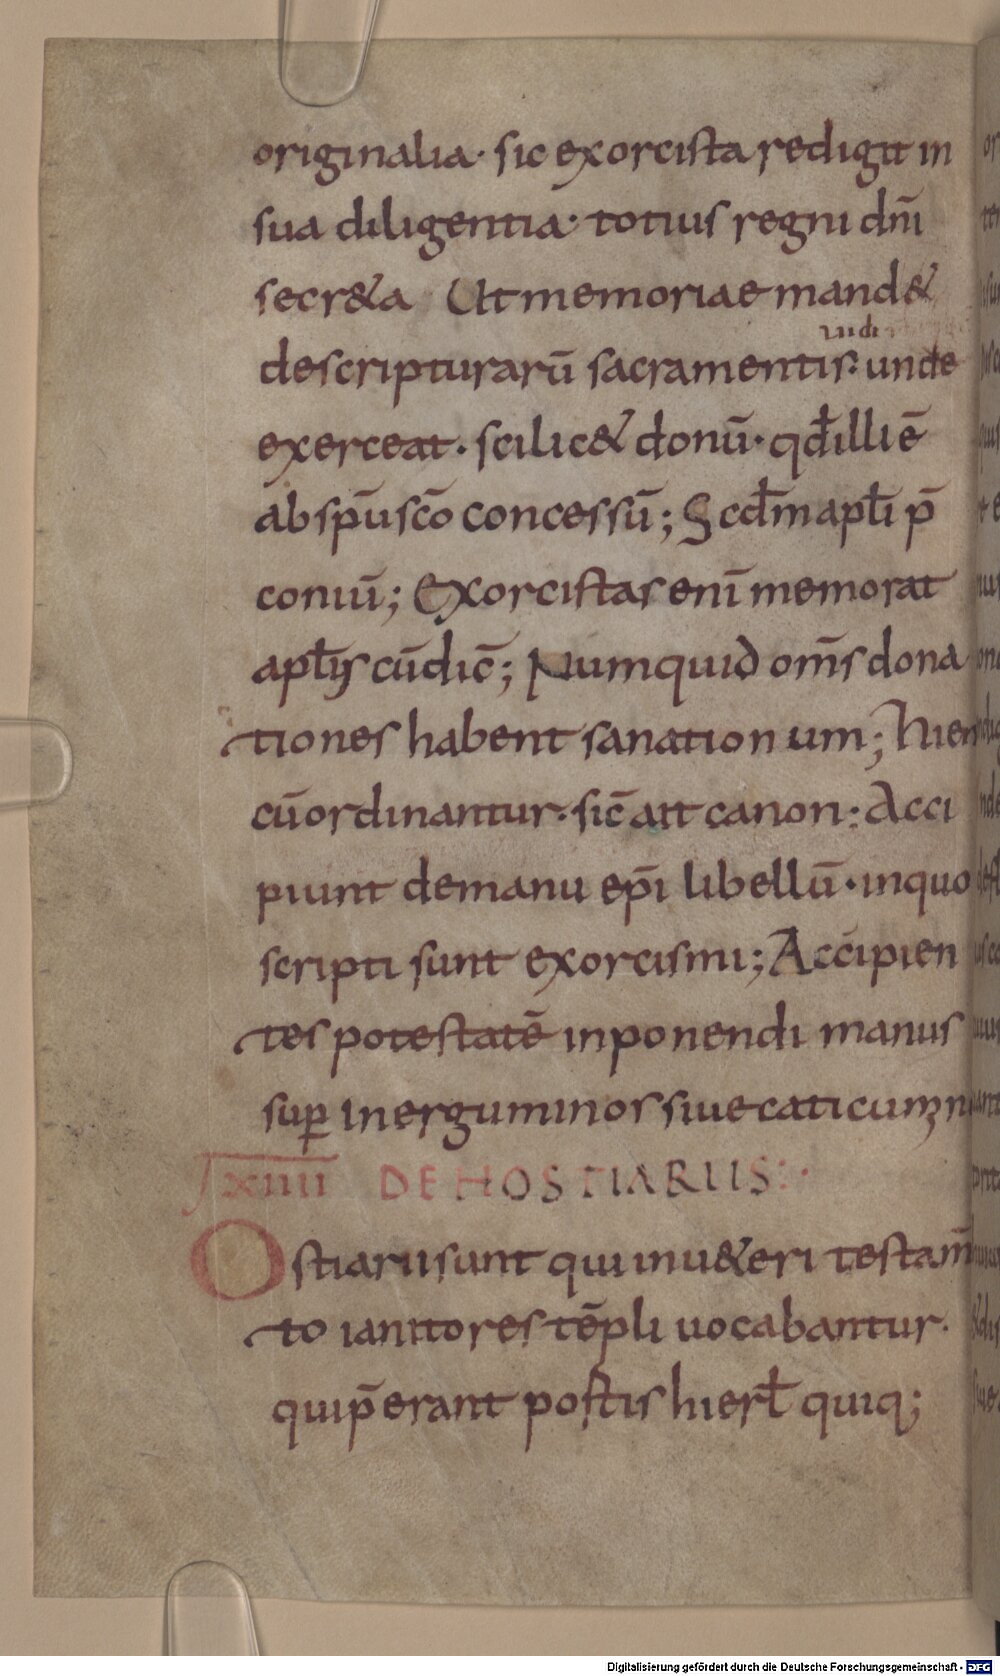 originalia· sic exorcista redigit in
sua diligentia· totius regni dn̄i
secr&a Ut memoriae mand&
descripturarū sacramentis: unde
exerceat· scilic& donū· qđ illi ē
ab sp̄u sc̄o concessū; Scđm aptł̄i p̄
coniū; Exorcistas enī memorat
aptł̄s cū dic̄; Numquid om̄s dona
tiones habent sanationum; Hi en
cū ordinantur· sic̄ ait canon: Acci
piunt demanu ep̄i libellū· inquo
scripti sunt exorcismi; Accipien
tes potestatē inponendi manus
suꝑ inerguminos siue caticum
XIIII DE HOSTIARIIS:·
Ostiarii sunt qui inu&eri testam̄
to ianitores tēpli uocabantur·
qui p̄erant postis hierł quiq;
Digitalisierung gefördert durch die Deutsche Forschungsgemeinschaft - DFG